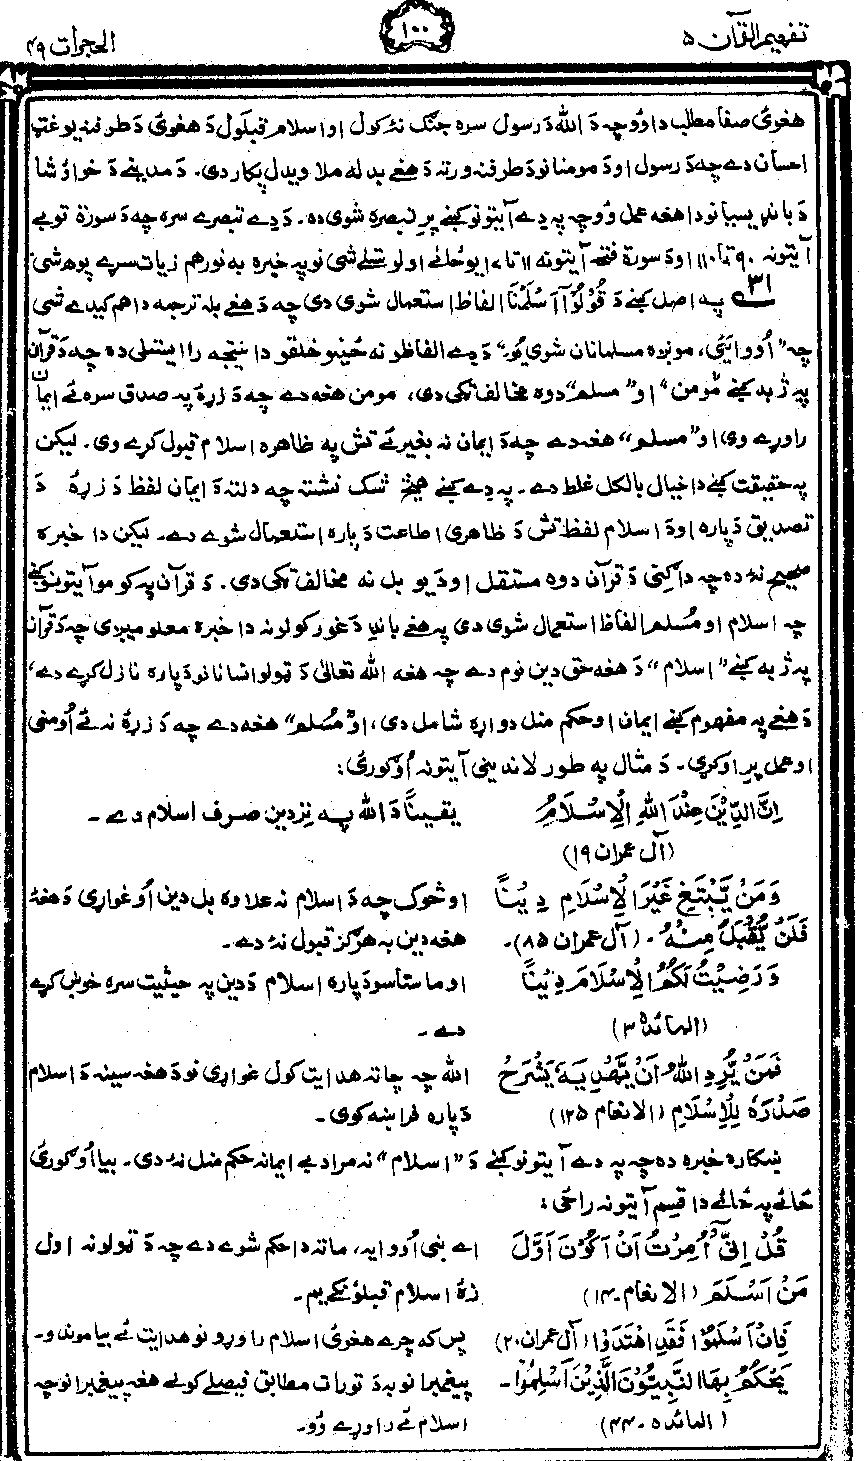 تفهيم القرآن ۵
۱۰۰
الحجرات ۴۹
هغوئ صفا مطلب دا وُو چه دَ الله دَ رسول سره جنګ نهٔ کول او اسلام قبلول دَ هغوئ دَ طرفنه يو غټ
احسان دے چه دَ رسول او دَ مومنانو دَ طرفنه ورته دَ هغے بدله ملاويدل پکار دى. دَ مدينے دَ خوا وُ شا
دَ بانډيسيانو دا هغه عمل وُو چه په دے آيتونو کښے پرِ تبصره شوى ده. دَ دے تبصرے سره چه دَ سورة توبے
آيتونه ۹۰ تا ۱۱۰ او دَ سورة فتح آيتونه ۱۱ تا ۱۷ يو ځائے اولوستلے شى نو په خبره به نور هم زيات سړے پوهه شى
۳۱ په اصل کښے دَ قُوْلُوْٓا اَسْلَمْنَا الفاظ استعمال شوى دى چه دَ هغے بله ترجمه دا هم کيدے شى
چه "اُووايئ، مونږه مسلمانان شوى يُو" دَ دے الفاظو نه ځينو خلقو دا نتيجه را ايستلى ده چه دَ قرآن
په ژبه کښے "مؤمن" او "مسلم" دوه مخالف ټکى دى، مومن هغه دے چه دَ زړهٔ په صدق سره ئے ايمان
راوړے وى او "مسلم" هغه دے چه دَ ايمان نه بغير ئے تش په ظاهره اسلام قبول کړے وى. ليکن
په حقيقت کښے دا خيال بالکل غلط دے. په دے کښے هيڅ شک نشته چه دلته دَ ايمان لفظ دَ زړهٔ دَ
تصديق دَ پاره او دَ اسلام لفظ تش دَ ظاهرى اطاعت دَ پاره استعمال شوے دے. ليکن دا خبره
صحيح نهٔ ده چه دا ګنى دَ قرآن دوه مستقل او دَ يو بل نه مخالف ټکى دى. دَ قرآن په کومو آيتونو کښے
چه اسلام او مُسلم الفاظ استعمال شوى دى په هغے باندِ دَ غور کولو نه دا خبره معلوميږى چه دَ قرآن
په ژبه کښے "اسلام" دَ هغه حق دين نوم دے چه هغه الله تعالىٰ دَ ټولو انسانانو دَ پاره نازل کړے دے،
دَ هغے په مفهوم کښے ايمان او حکم منل دواړه شامل دى، او "مُسلم" هغه دے چه دَ زړهٔ نه ئے اُومنى
او عمل پرِ اوکړى. دَ مثال په طور لاندينى آيتونه اُوګورئ:
اِنَّ الدِّيْنَ عِنْدَ اللهِ الْاِسْلَامُ
يقيناً دَ الله په نزد دين صرف اسلام دے.
(آل عمران ۱۹)
وَمَنْ يَّبْتَغِ غَيْرَ الْاِسْلَامِ دِيْنًا
او څوک چه دَ اسلام نه علاوه بل دين اُوغواړى دَ هغهٔ
فَلَنْ يُّقْبَلَ مِنْهُ. (آل عمران ۸۵).
هغه دين به هرګز قبول نهٔ دے.
وَرَضِيْتُ لَكُمُ الْاِسْلَامَ دِيْنًا
او ما ستاسو دَ پاره اسلام دَ دين په حيثيت سره خوښ کړے
(المائده ۳)
دے.
فَمَنْ يُّرِدِ اللهُ اَنْ يَّهْدِيَهٗ يَشْرَحْ
الله چه چاته هدايت کول غواړى نو دَ هغه سينه دَ اسلام
صَدْرَهٗ لِلْاِسْلَامِ (الانعام ۱۲۵)
دَ پاره فراخه کوى.
ښکاره خبره ده چه په دے آيتونو کښے دَ "اسلام" نه مراد بے ايمانه حکم منل نهٔ دى. بيا اُوګورئ
ځائے په ځائے دا قسم آيتونه راځى:
قُلْ اِنِّىْٓ اُمِرْتُ اَنْ اَكُوْنَ اَوَّلَ
اے نبى اُووايه، ماته دا حکم شوے دے چه دَ ټولو نه اول
مَنْ اَسْلَمَ (الانعام ۱۴)
زهٔ اسلام قبلوُنکے يم.
فَاِنْ اَسْلَمُوْا فَقَدِ اهْتَدَوْا (آل عمران ۲۰)
پس که چرے هغوئ اسلام راوړو نو هدايت ئے بياموندو.
يَحْكُمُ بِهَا النَّبِيُّوْنَ الَّذِيْنَ اَسْلَمُوْا.
پيغمبرانو به دَ تورات مطابق فيصلے کولے هغه پيغمبرانو چه
(المائده ۴۴)
اسلام ئے راوړے وُو.